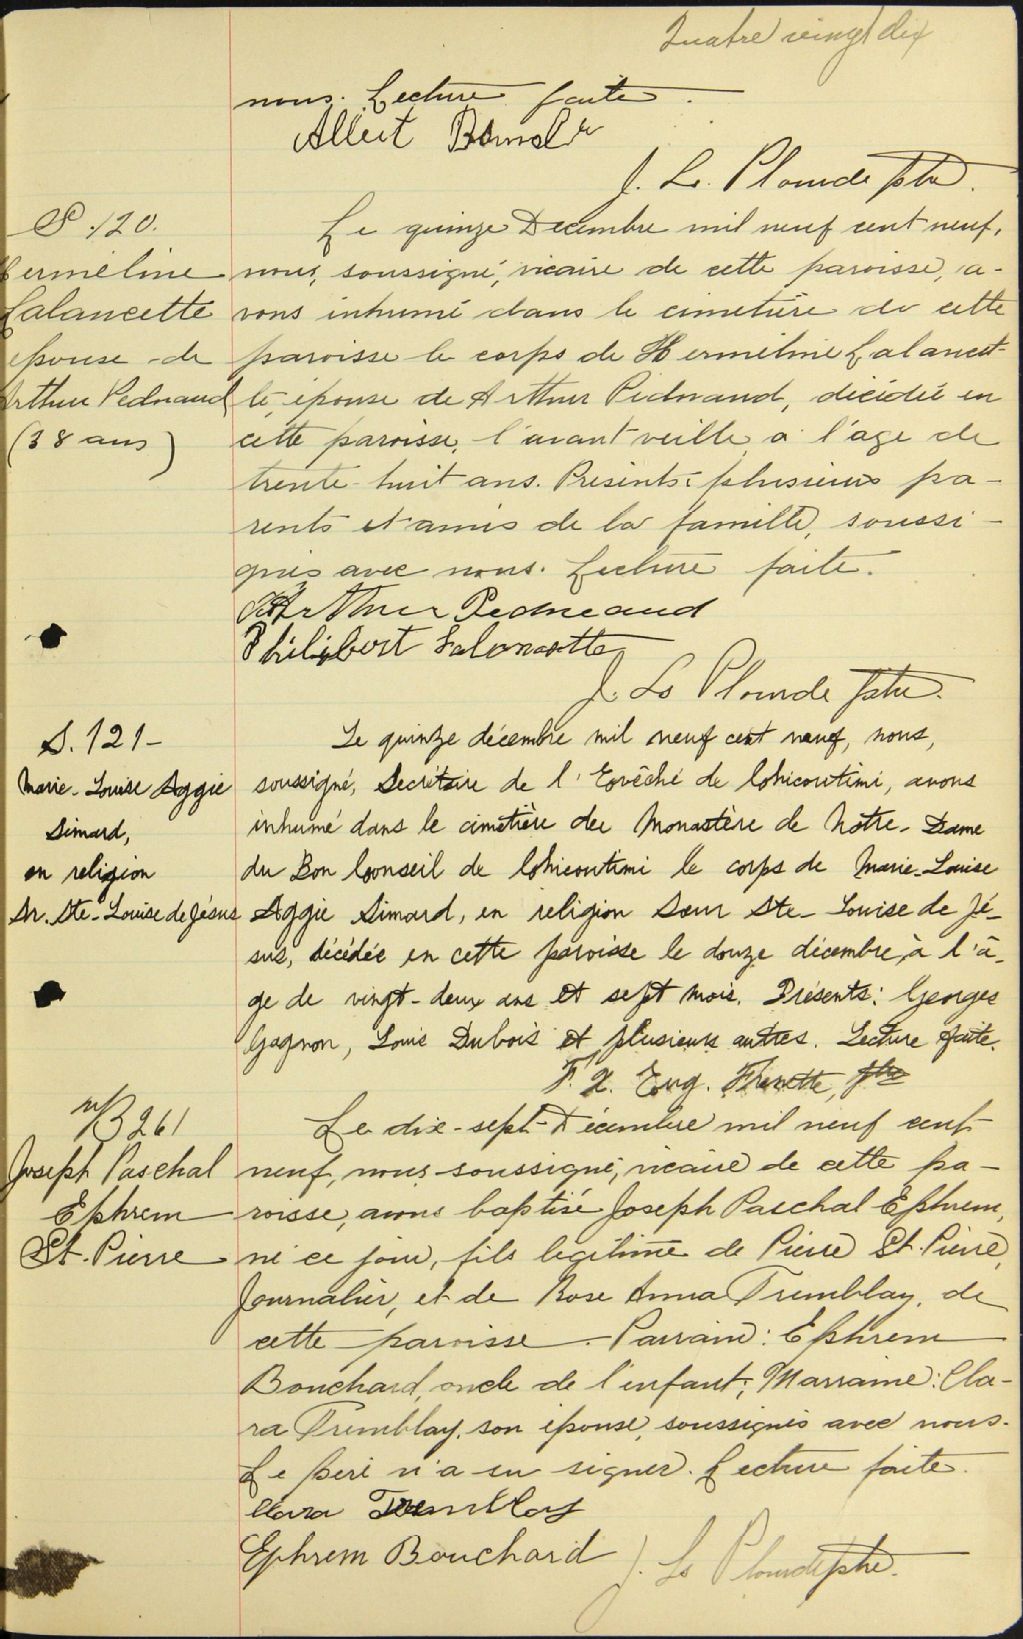 Quatre vingt dix
nous. Lecture faite.
Albert
J. Ls. Plourde ptre.
S. 120.
Hermeline
Lalancette
épouse de
Arthur Pednaud
(38 ans)
Le quinze Decembre mil neuf cent neuf,
nous, soussigné, vicaire de cette paroisse, a-
vons inhumé dans le cimetière de cette
paroisse le corps de Hermeline Lalancet-
te, épouse de Arthur Pednaud, décédée en
cette paroisse, l'avant veille, à l'age de
trente huit ans. Présents: plusieurs pa-
rents et amis de la famille, soussi-
gnés avec nous. Lecture faite.
Arthur Pedneaud
Philibert Lalancette
J. Ls Plourde ptre.
S. 121-
Marie-Louise Aggie
Simard,
en religion
Sr. Ste-Louise de Jésus
Le quinze décembre mil neuf cent neuf, nous,
soussigné, Secrétaire de l'Evêché de Chicoutimi, avons
inhumé dans le cimetière du Monastère de Notre-Dame
du Bon Conseil de Chicoutimi le corps de Marie-Louise
Aggie Simard, en religion Sœur Ste-Louise de Jé-
sus, décédée en cette paroisse le douze décembre, à l'â-
ge de vingt-deux ans et sept mois. Présents: Georges
Gagnon, Louis Dubois et plusieurs autres. Lecture faite.
F. X. Eug. Frenette, ptre
B 261
Joseph Paschal
Ephrem
St-Pierre
Le dix-sept Décembre mil neuf cent
neuf, nous soussigné, vicaire de cette pa-
roisse, avons baptisé Joseph Paschal Ephrem,
né ce jour, fils legitime de Pierre St-Pierre,
Journalier, et de Rose Anna Tremblay, de
cette paroisse. Parrain: Ephrem
Bouchard, oncle de l'enfant; Marraine: Cla-
ra Tremblay, son épouse, soussignés avec nous.
Le père n'a su signer. Lecture faite.
Clara Tremblay
Ephrem Bouchard
J. Ls Plourde ptre.